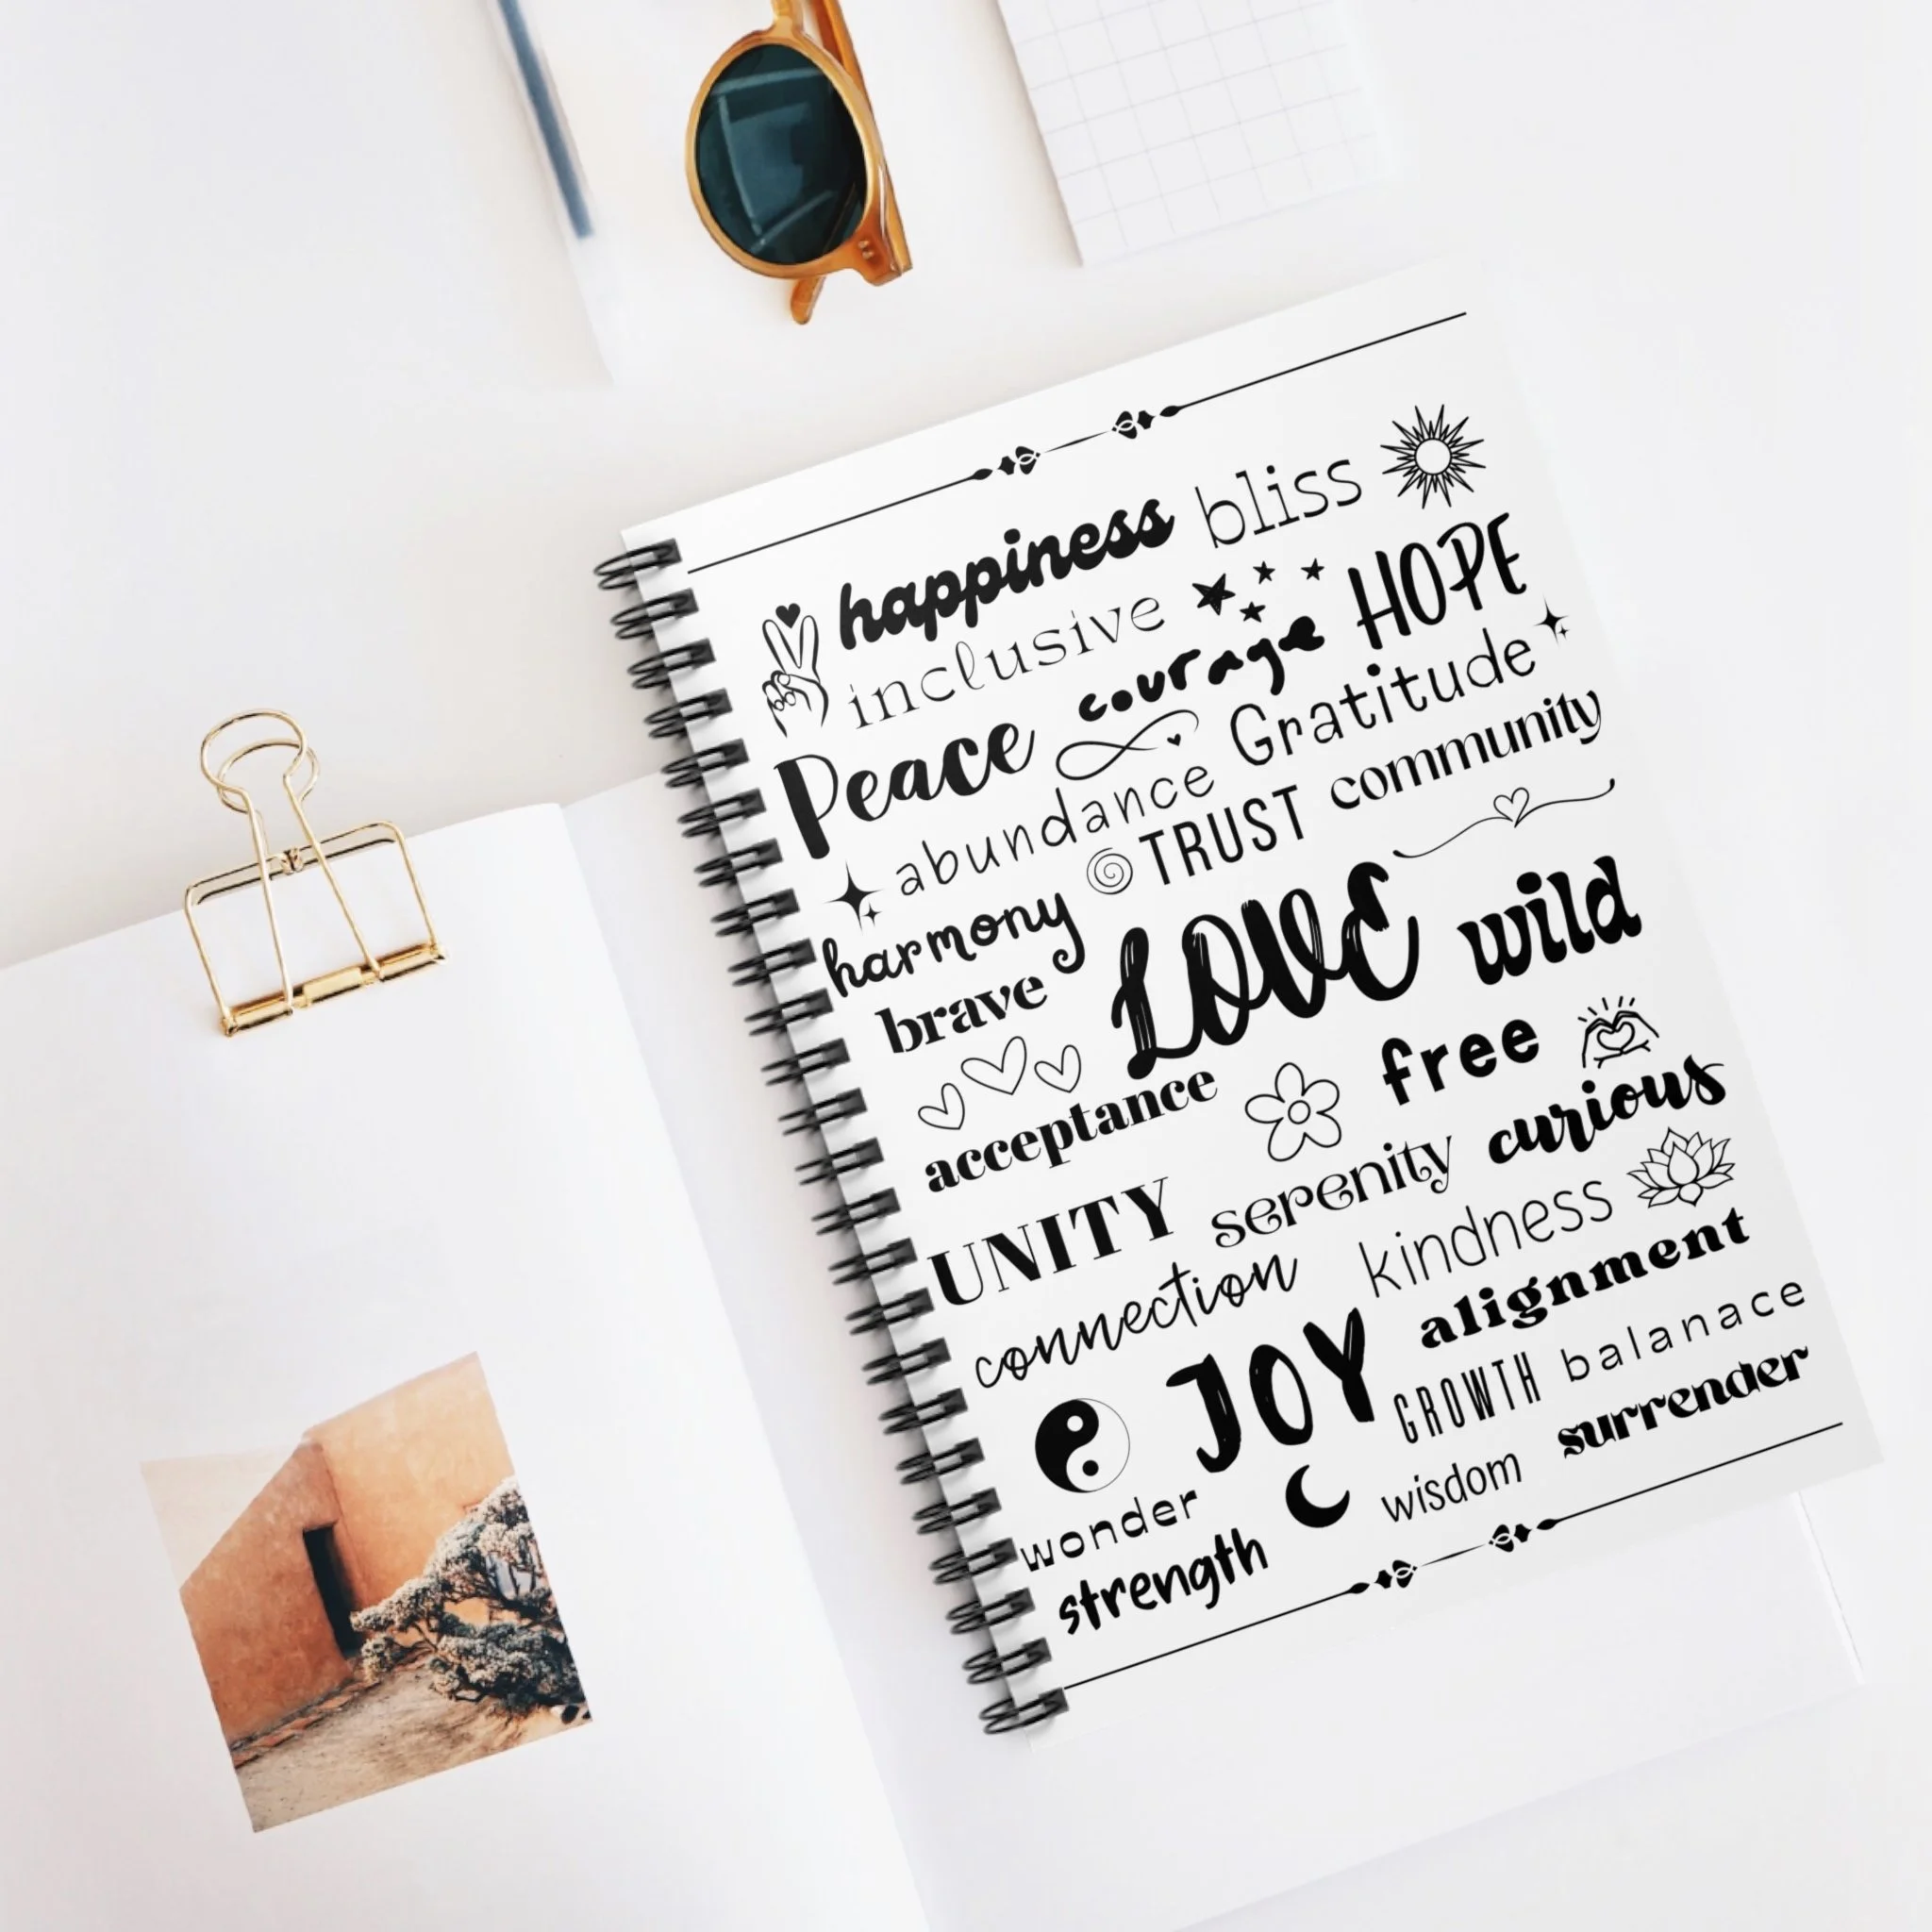 happiness bliss
inclusive
courage HOPE
Peace
abundance Gratitude
TRUST community
harmony
brave LOVE wild
free
acceptance
serenity curious
UNITY
connection kindness
alignment
JOY GROWTH balanace
wonder
wisdom surrender
strength